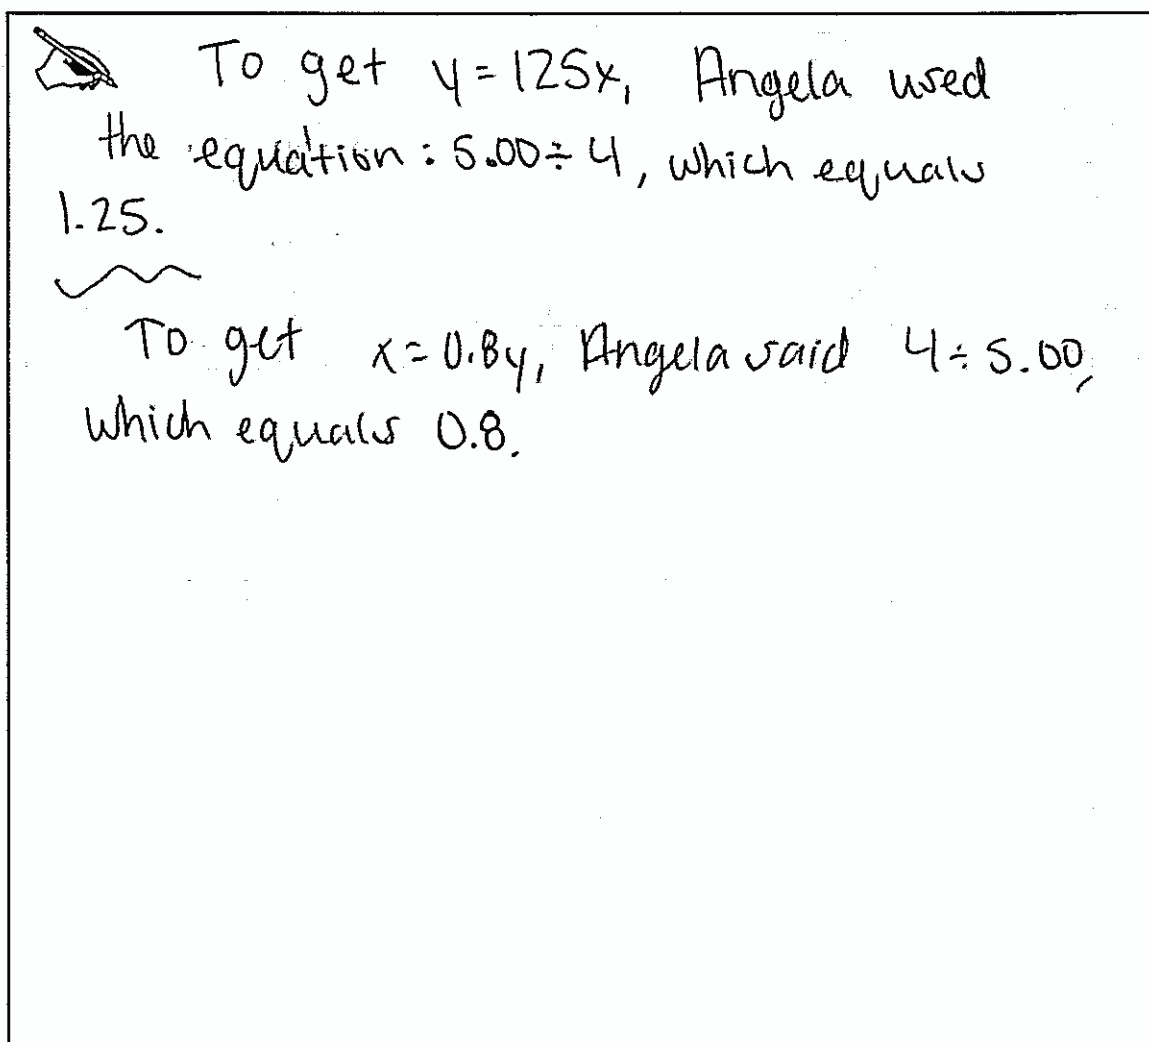 To get y = 125x, Angela used
the equation: 5.00 ÷ 4, which equals
1.25.
To get x = 0.8y, Angela said 4 ÷ 5.00,
which equals 0.8.